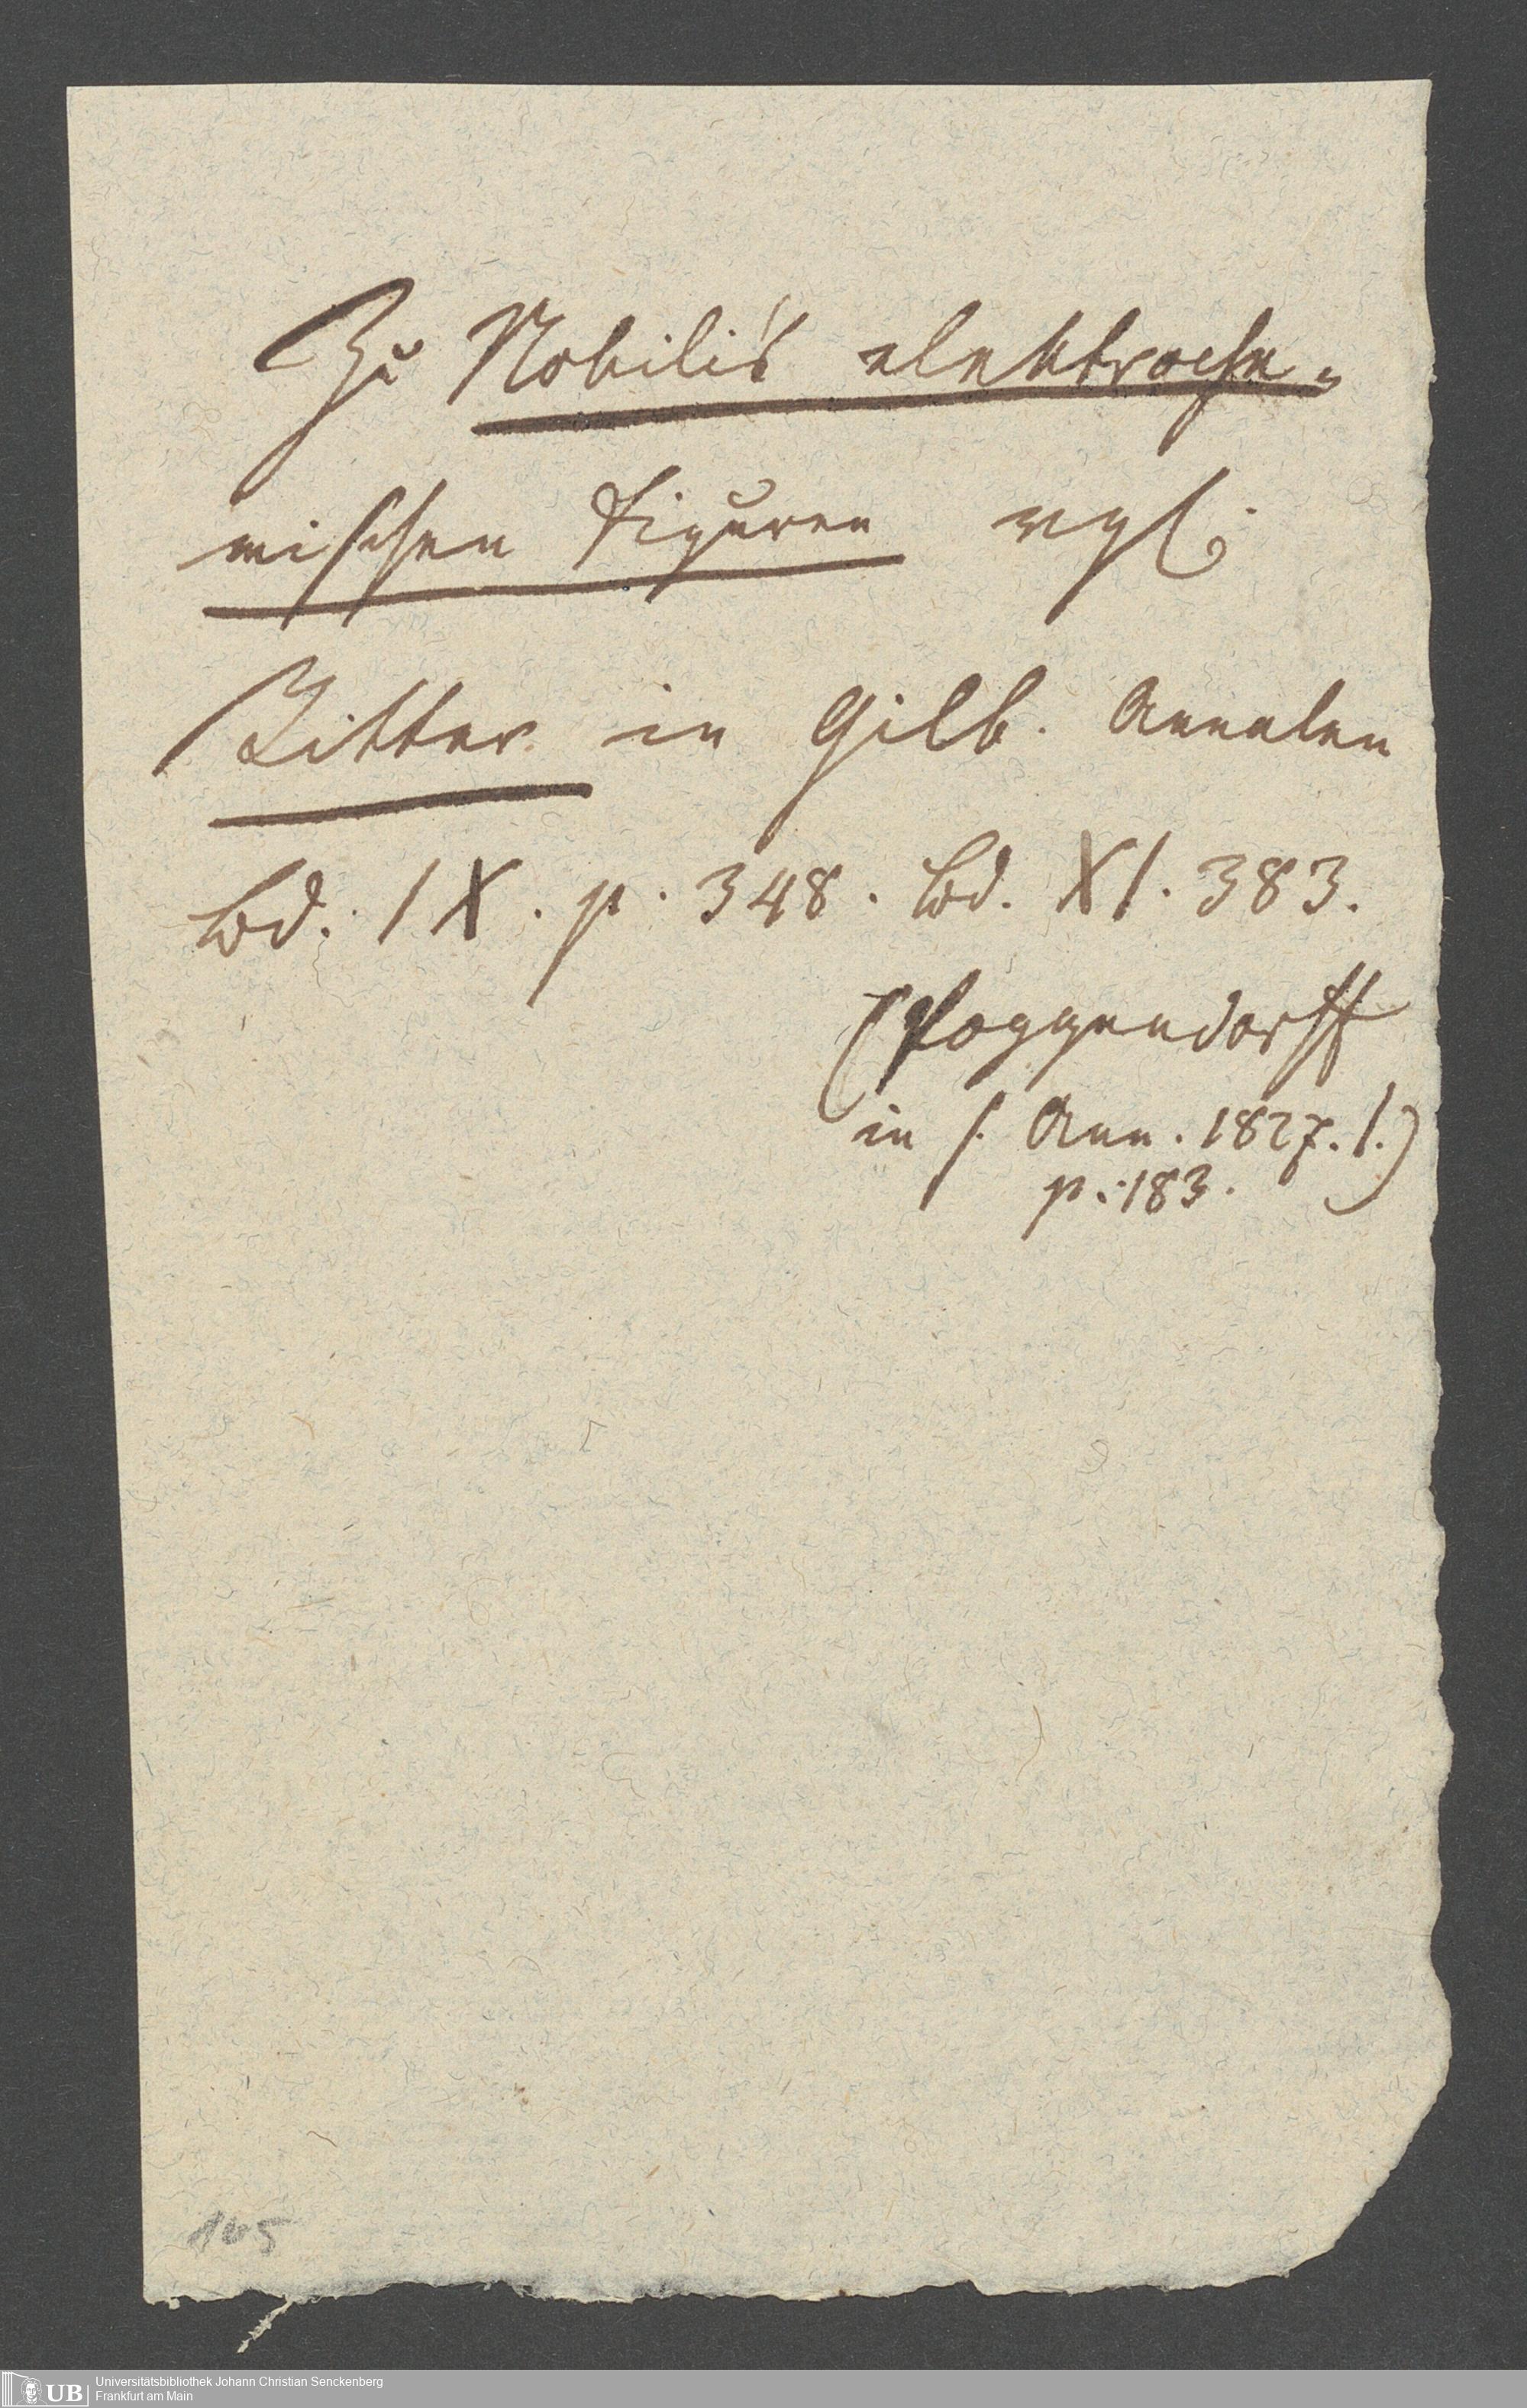 Zu Nobili's elektroche-
mischen Figuren vgl.
Ritter in Gilb. Annalen
Bd. IX. p. 348. Bd. XI. 383.
(Poggendorff
in s. Ann. 1827. I.)
p. 183.
145
UB
Universitätsbibliothek Johann Christian Senckenberg
Frankfurt am Main